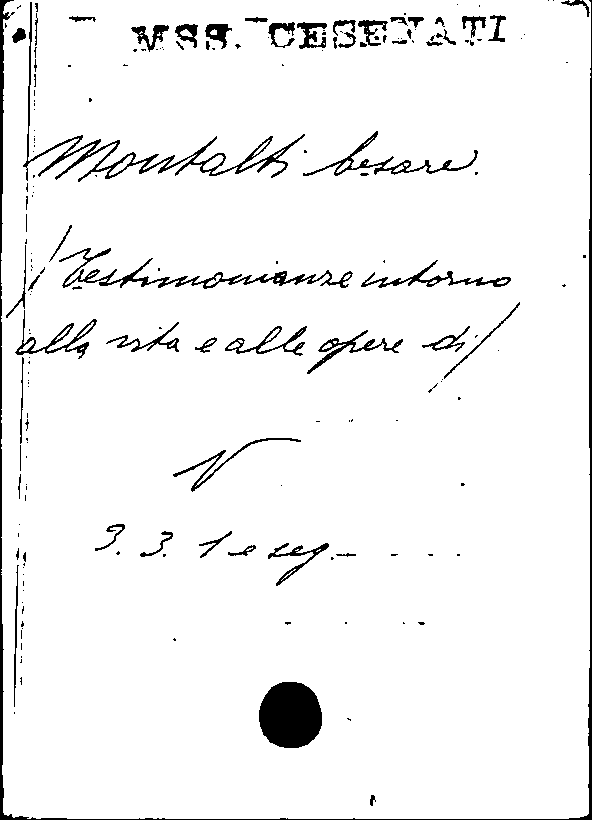 MSS. CESENATI
Montalti Cesare.
/Testimonianze intorno
alla vita e alle opere di/
V
3. 3. 1 e seg.